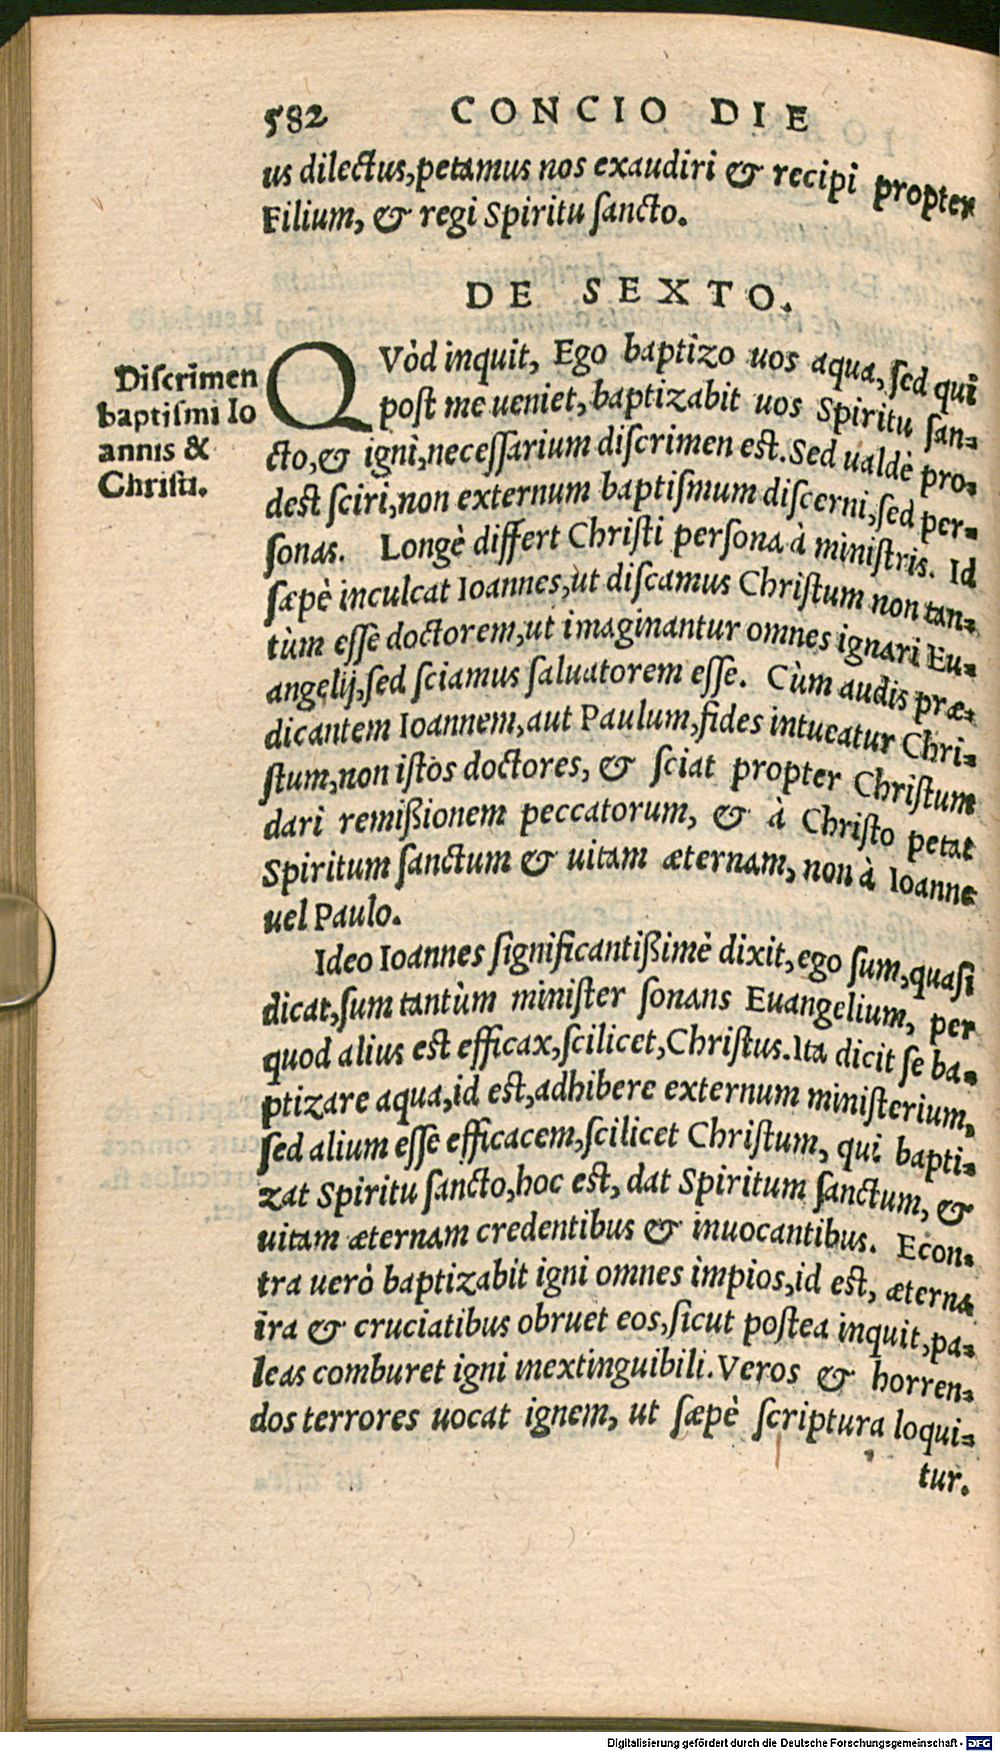 582 CONCIO DIE
us dilectus, petamus nos exaudiri & recipi propter
Filium, & regi Spiritu ſancto.
DE SEXTO.
Diſcrimen
baptiſmi Io
annis &
Chriſti.
QVòd inquit, Ego baptizo uos aqua, ſed qui
poſt me ueniet, baptizabit uos Spiritu ſan-
cto, & igni, neceſſarium diſcrimen est. Sed ualdè pro-
dest ſciri, non externum baptiſmum diſcerni, ſed per-
ſonas. Longè differt Chriſti perſona à miniſtris. Id
ſæpè inculcat Ioannes, ut diſcamus Chriſtum non tan-
tùm eſſe doctorem, ut imaginantur omnes ignari Eu-
angelij, ſed ſciamus ſaluatorem eſſe. Cùm audis præ-
dicantem Ioannem, aut Paulum, fides intueatur Chri-
ſtum, non iſtos doctores, & ſciat propter Chriſtum
dari remißionem peccatorum, & à Chriſto petat
Spiritum ſanctum & uitam æternam, non à Ioanne
uel Paulo.
Ideo Ioannes ſignificantißimè dixit, ego ſum, quaſi
dicat, ſum tantùm miniſter ſonans Euangelium, per
quod alius est efficax, ſcilicet, Chriſtus. Ita dicit ſe ba-
ptizare aqua, id est, adhibere externum miniſterium,
ſed alium eſſe efficacem, ſcilicet Chriſtum, qui bapti-
zat Spiritu ſancto, hoc est, dat Spiritum ſanctum, &
uitam æternam credentibus & inuocantibus. Econ-
tra uerò baptizabit igni omnes impios, id est, æterna
ira & cruciatibus obruet eos, ſicut poſtea inquit, pa-
leas comburet igni inextinguibili. Veros & horren-
dos terrores uocat ignem, ut ſæpè ſcriptura loqui-
tur.
Digitalisierung gefördert durch die Deutsche Forschungsgemeinschaft - DFG